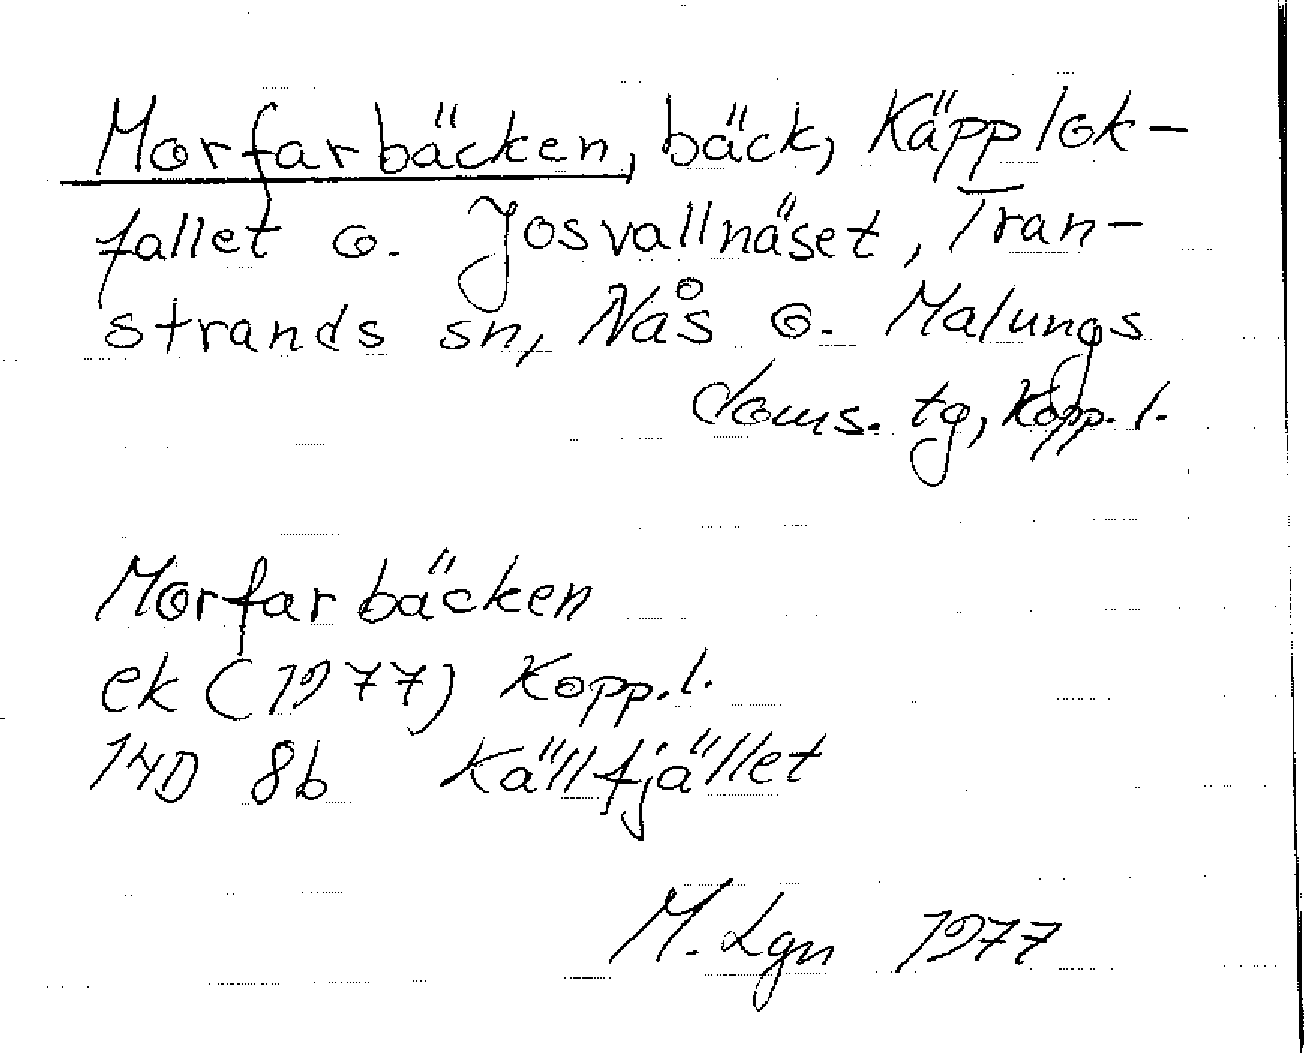 Morfarbäcken, bäck, Käpplok-
fallet o. Josvallnäset, Tran-
strands sn, Nås o. Malungs
doms. tg, Kopp. l.
Morfarbäcken
ek (1977) Kopp. l.
14D 8b Källfjället
M. Lgn 1977